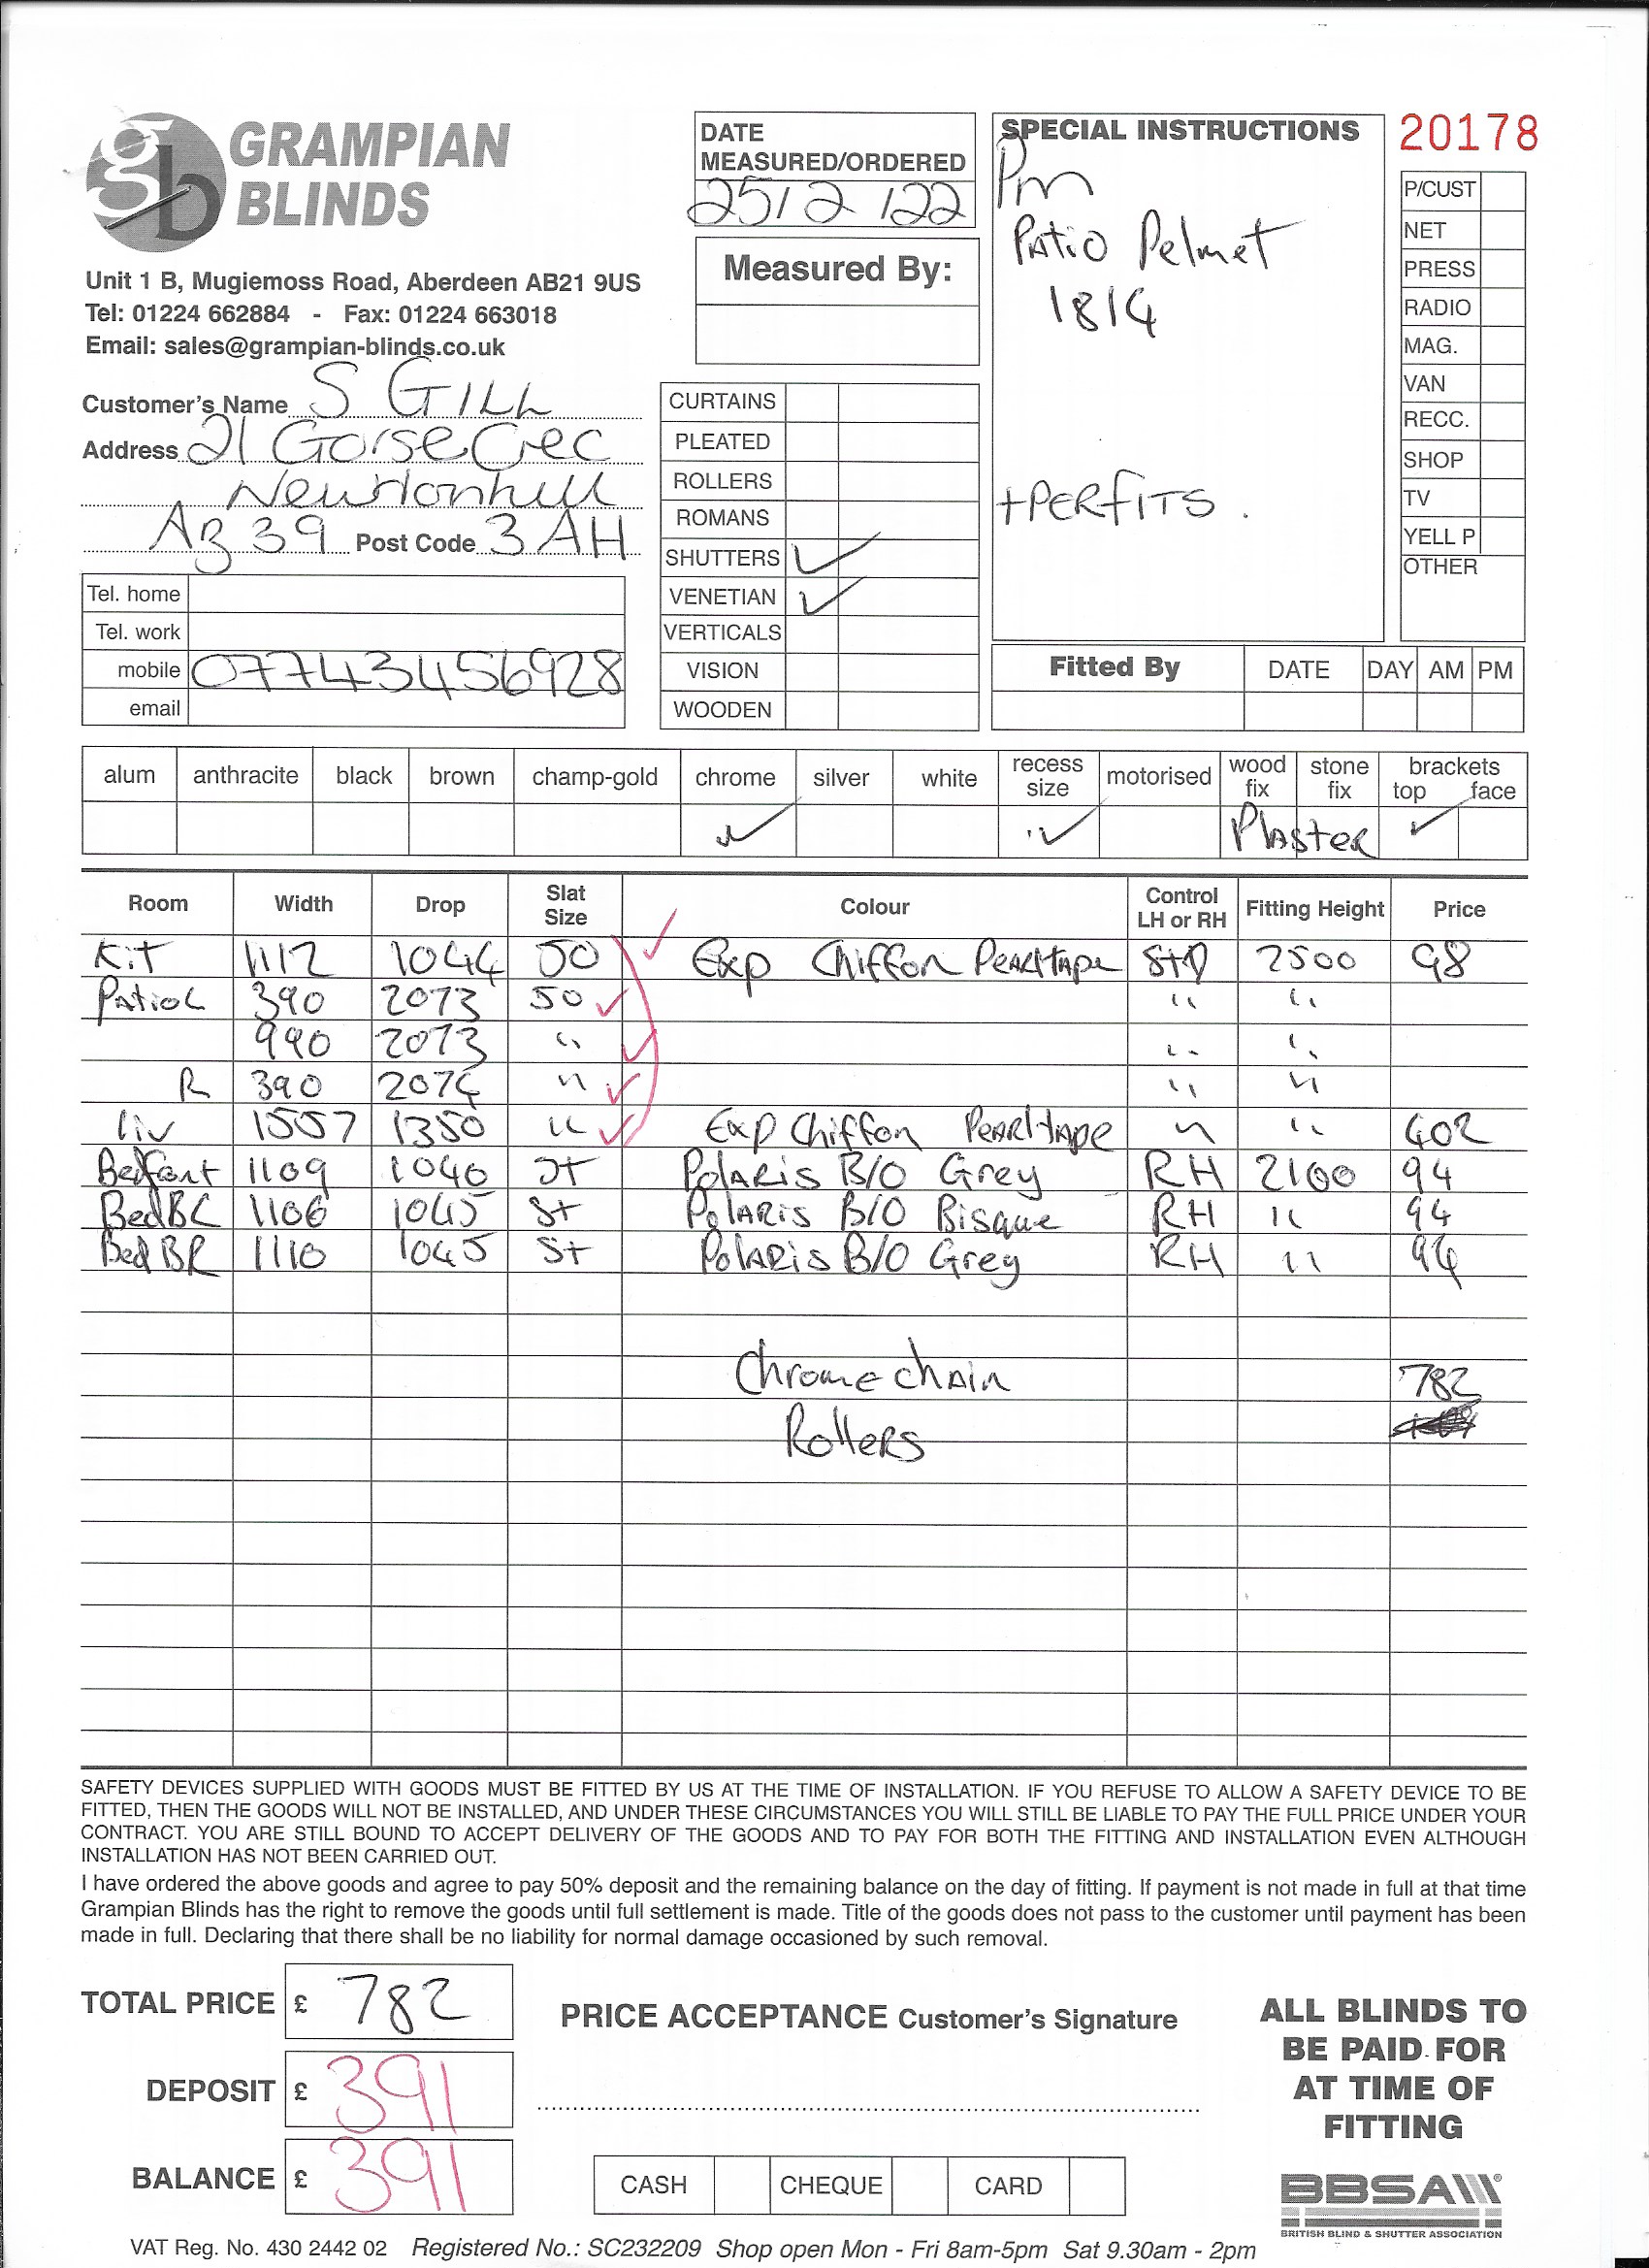 GRAMPIAN
BLINDS
Unit 1 B, Mugiemoss Road, Aberdeen AB21 9US
Tel: 01224 662884 - Fax: 01224 663018
Email: sales@grampian-blinds.co.uk
Customer's Name S GILL
Address 21 Gorse Crec
Newtonhill
AB 39 Post Code 3 AH
Tel. home
Tel. work
mobile 07743456928
email
DATE
MEASURED/ORDERED
25/2/22
Measured By:
CURTAINS
PLEATED
ROLLERS
ROMANS
SHUTTERS ✓
VENETIAN ✓
VERTICALS
VISION
WOODEN
SPECIAL INSTRUCTIONS
Pm
Patio Pelmet
1814
+PERFITS.
20178
P/CUST
NET
PRESS
RADIO
MAG.
VAN
RECC.
SHOP
TV
YELL P
OTHER
Fitted By DATE DAY AM PM
alum anthracite black brown champ-gold chrome silver white recess size motorised wood fix stone fix brackets top face
✓ ✓ Plaster ✓
Room Width Drop Slat Size Colour Control LH or RH Fitting Height Price
Kit 1112 1044 50 ✓ Exp Chiffon Pearl tape STD 2500 98
Patio L 390 2073 50 ✓ " "
990 2073 " ✓ " "
R 390 2074 " ✓ " "
Liv 1557 1350 " ✓ Exp Chiffon Pearl tape " " 402
Bedfont 1109 1040 St Polaris B/O Grey RH 2100 94
Bed BL 1106 1045 St Polaris B/O Bisque RH " 94
Bed BR 1110 1045 St Polaris B/O Grey RH " 94
Chrome chain 782
Rollers
SAFETY DEVICES SUPPLIED WITH GOODS MUST BE FITTED BY US AT THE TIME OF INSTALLATION. IF YOU REFUSE TO ALLOW A SAFETY DEVICE TO BE
FITTED, THEN THE GOODS WILL NOT BE INSTALLED, AND UNDER THESE CIRCUMSTANCES YOU WILL STILL BE LIABLE TO PAY THE FULL PRICE UNDER YOUR
CONTRACT. YOU ARE STILL BOUND TO ACCEPT DELIVERY OF THE GOODS AND TO PAY FOR BOTH THE FITTING AND INSTALLATION EVEN ALTHOUGH
INSTALLATION HAS NOT BEEN CARRIED OUT.
I have ordered the above goods and agree to pay 50% deposit and the remaining balance on the day of fitting. If payment is not made in full at that time
Grampian Blinds has the right to remove the goods until full settlement is made. Title of the goods does not pass to the customer until payment has been
made in full. Declaring that there shall be no liability for normal damage occasioned by such removal.
TOTAL PRICE £ 782
DEPOSIT £ 391
BALANCE £ 391
PRICE ACCEPTANCE Customer's Signature
CASH CHEQUE CARD
ALL BLINDS TO
BE PAID FOR
AT TIME OF
FITTING
BBSA
BRITISH BLIND & SHUTTER ASSOCIATION
VAT Reg. No. 430 2442 02 Registered No.: SC232209 Shop open Mon - Fri 8am-5pm Sat 9.30am - 2pm